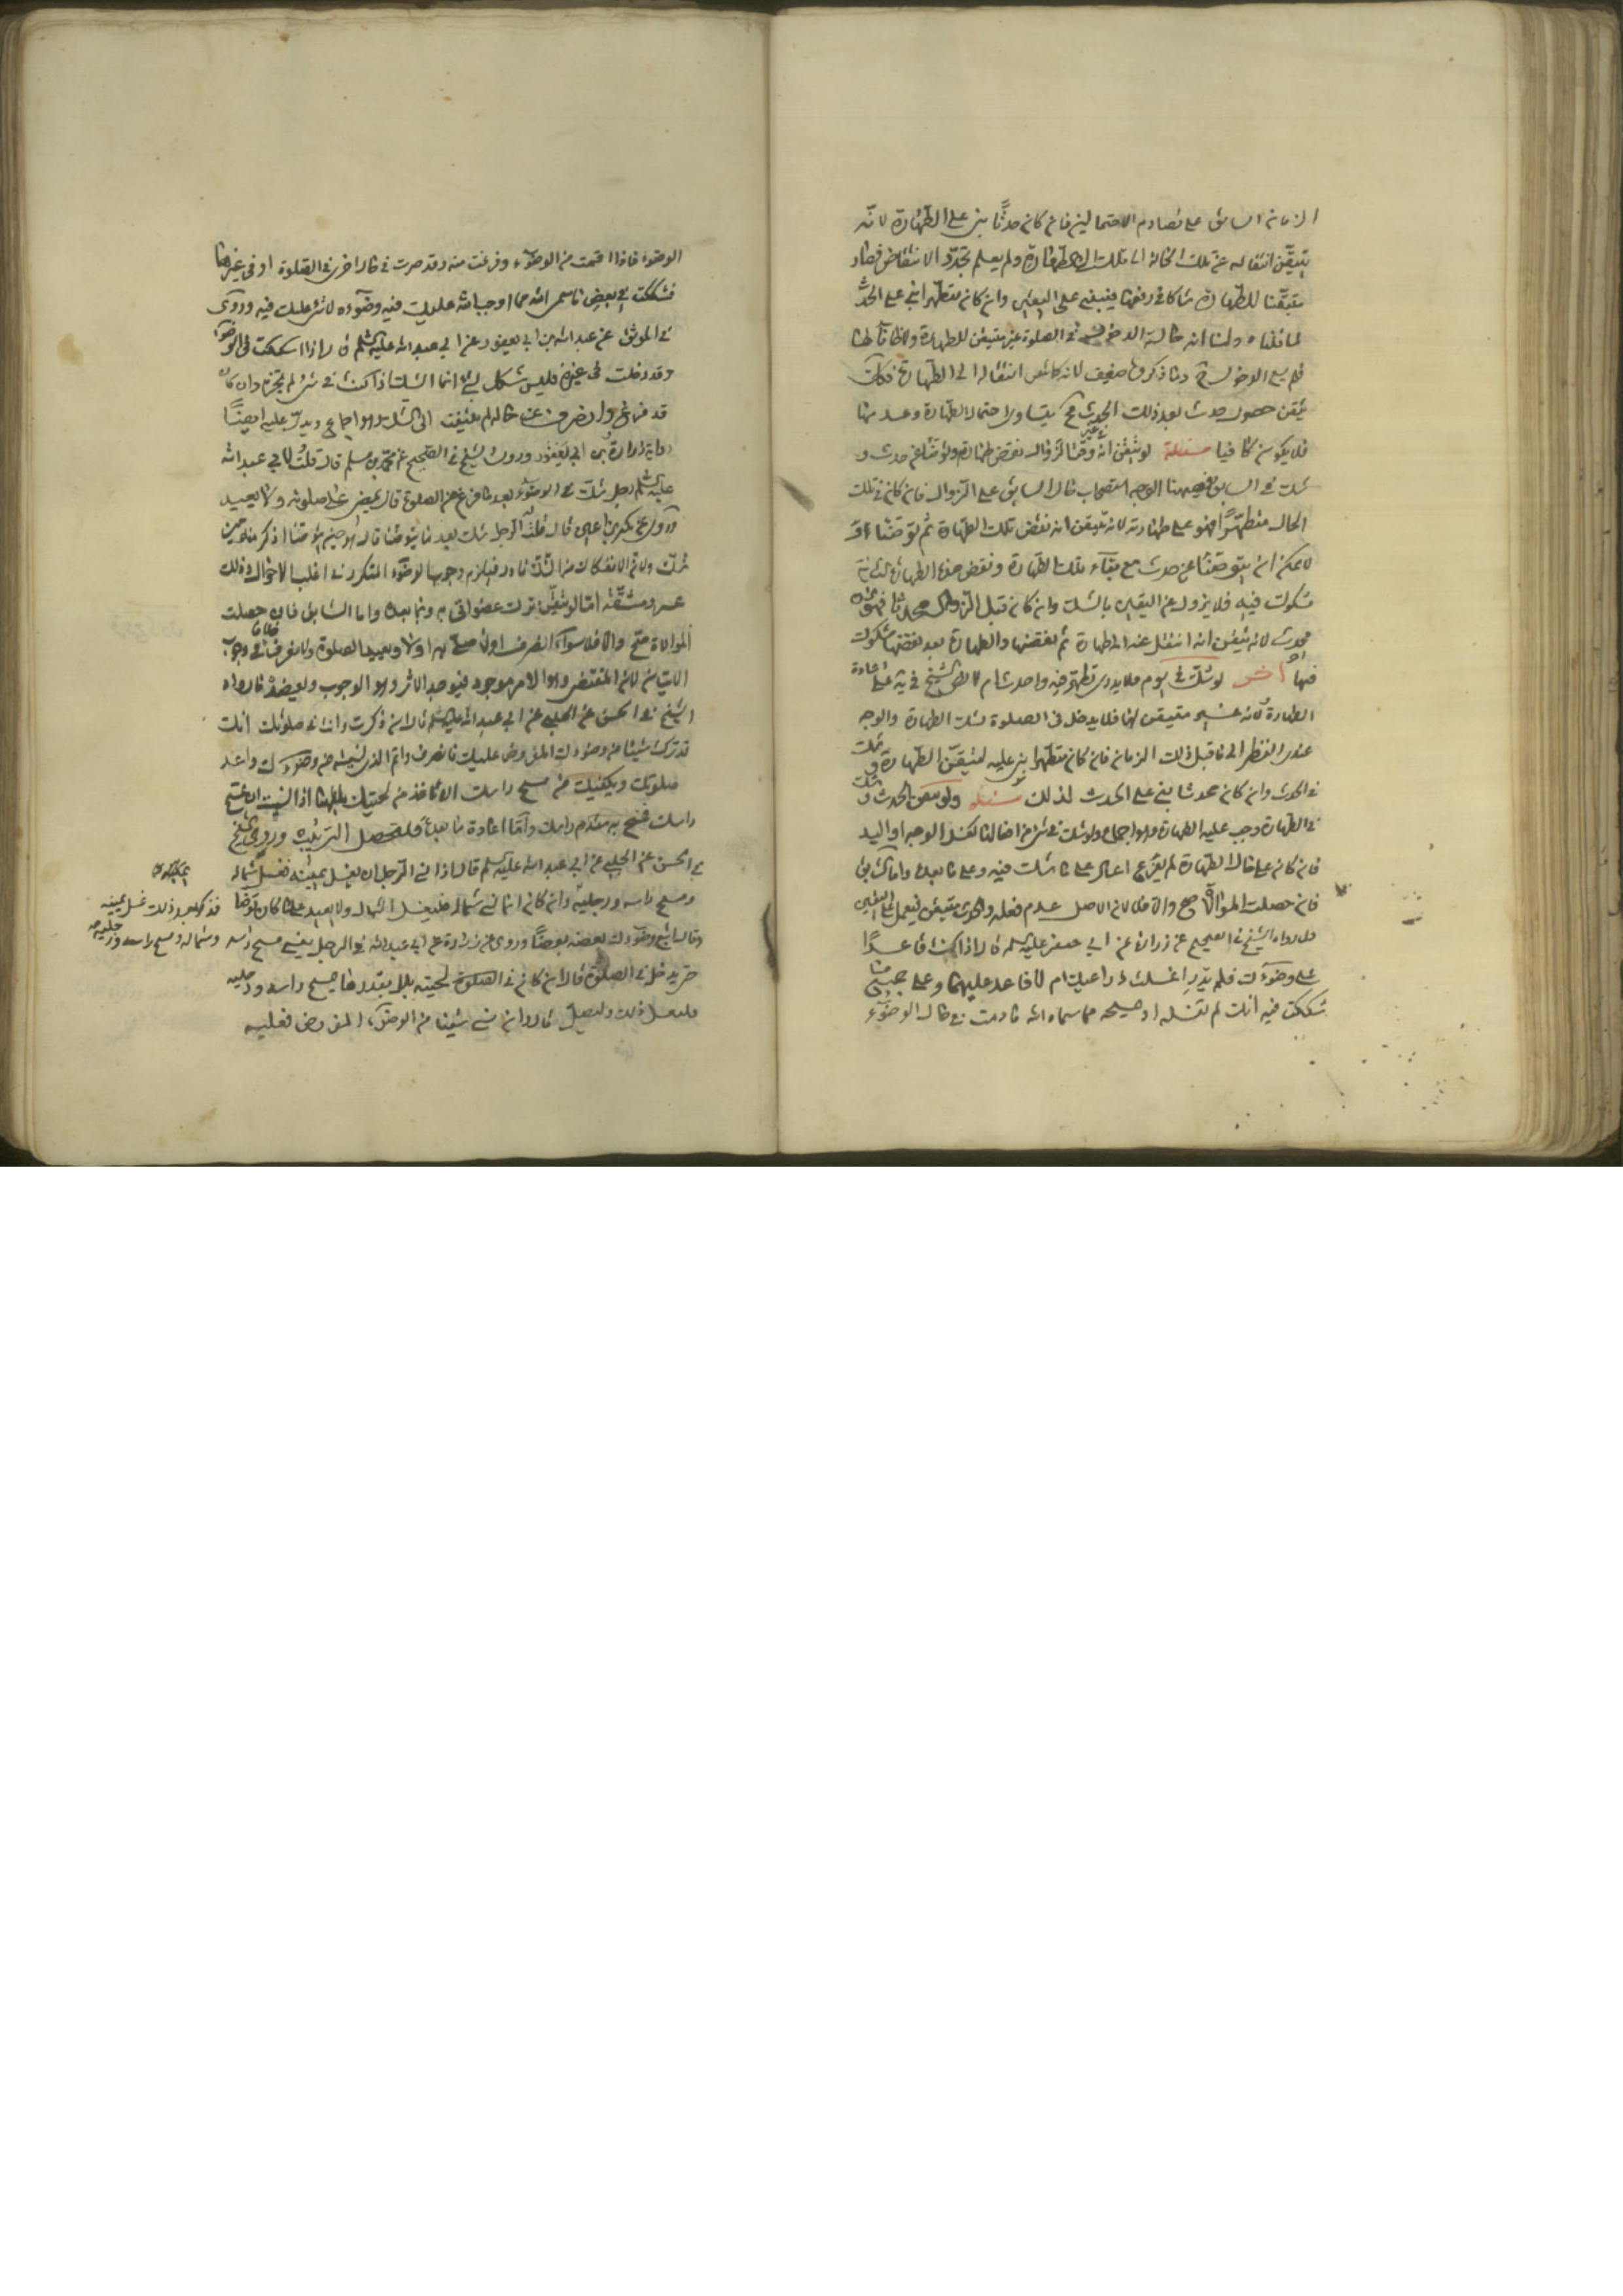 الزمان السابق على تصادم الاحتمالين فان كان محدثا بنى على الطهارة لانه
تيقن انتقاله عن تلك الحالة الى تلك الطهارة ولم يعلم تجدد الانتقاض فصار
متيقنا للطهارة شاكا في رفعها فيبنى على اليقين وان كان متطهرا بنى على الحدث
لما قلناه ولنا انه حالة الدخول في الصلوة غير متيقن للطهارة
فلم يسغ الدخول وما ذكروه ضعيف لانه كما تيقن انتقاله الى الطهارة فكذا
تيقن حصول حدث بعد ذلك الحدث يتساوى احتمال الطهارة وعدمها
فلا يكون كافيا مسئلة لو تيقن انه وقت الزوال نقض طهارة وتوضأ عن حدث و
شك في السابق فهيهنا الوجه استصحاب حال السابق على الزوال فان كان في تلك
الحال متطهرا فهو على طهارته لانه تيقن انه نقض تلك الطهارة ثم توضأ اذ
لا يمكن ان يتوضأ عن حدث مع بقاء تلك الطهارة ونقض هذه الطهارة الثانية
مشكوك فيه فلا يزول عن اليقين بالشك وان كان قبل الزوال محدثا فهو الآن
محدث لانه تيقن انه انتقل عنه الى طهارة ثم نقضها والطهارة بعد نقضها مشكوك
فيها آخر لو شك في يوم فلا يدري تطهر فيه واحدث ام لا
الطهارة لانه غير متيقن لها فلا يدخل في الصلوة بشك الطهارة والوجه
عندي النظر الى ما قبل ذلك الزمان فان كان متطهرا بنى عليه لتيقن الطهارة وشك
في الحدث وان كان محدثا بنى على الحدث لذلك مسئلة ولو تيقن الحدث وشك
في الطهارة وجب عليه الطهارة وهو اجماع ولو شك في شئ من افعالها كغسل الوجه او اليد
فان كان على حال الطهارة لم يفرغ اعاد على ما شك فيه وعلى ما بعده واما السابق
فان حصلت الموالاة صح والا فلا لان الاصل عدم فعله والحدث متيقن فيعمل على اليقين
ولما رواه الشيخ في الصحيح عن زرارة عن ابي جعفر عليه السلم قال اذا كنت قاعدا
على وضوءك فلم تدر اغسلت ذراعيك ام لا فاعد عليهما وعلى جميع ما
شككت فيه انك لم تغسله او تمسحه مما سماه الله ما دمت في حال الوضوء
الوضوء فاذا قمت من الوضوء وفرغت منه وقد صرت في حال اخرى في الصلوة او في غيرها
فشككت في بعض ما سمى الله مما اوجب الله عليك فيه وضوءه لا شئ عليك فيه وروى
في الموثق عن عبد الله بن ابي يعفور عن ابي عبد الله عليه السلم قال اذا شككت في شئ من الوضوء
وقد دخلت في غيره فليس شكك بشئ انما الشك اذا كنت في شئ لم تجزه وان كان
قد فرغ وانصرف عن حاله لم يلتفت الى الشك وهو اجماع ويدل عليه ايضا
رواية زرارة وابن ابي يعفور وروى الشيخ في الصحيح عن محمد بن مسلم قال قلت لابي عبد الله
عليه السلم رجل شك في الوضوء بعد ما فرغ من الصلوة قال يمضي على صلوته ولا يعيد
وروى عن بكير بن اعين قال قلت له الرجل يشك بعد ما يتوضأ قال هو حين يتوضأ اذكر منه حين
يشك ولان الانفكاك من الشك نادر فيلزم وجوب الوضوء المتكرر في اغلب الاحوال وذلك
عسر ومشقة اما لو تيقن ترك عضو اتى به وبما بعده واما السابق فان حصلت
الموالاة صح والا فلا سواء انصرف اولا صلى به اولا ويعيد الصلوة ولا نعرف خلافا في وجوب
الاتيان لان المقتضى وهو الامر موجود فيوجد الاثر وهو الوجوب ويعضده ما رواه
الشيخ في الحسن عن الحلبي عن ابي عبد الله عليه السلم قال ان ذكرت وانت في صلوتك انك
قد تركت شيئا من وضوءك المفروض عليك فانصرف واتم الذي نسيته من وضوءك واعد
صلوتك ويكفيك من مسح راسك ان تاخذ من لحيتك بللها اذا نسيت ان تمسح
راسك فتمسح به مقدم راسك واما اعادة ما بعده فلتحصل الترتيب وروى الشيخ
في الحسن عن الحلبي عن ابي عبد الله عليه السلم قال اذا نسي الرجل ان يغسل يمينه فغسل شماله
ومسح راسه ورجليه وان كان انما نسي شماله فليغسل الشمال ولا يعيد على ما كان توضأ
فذكر بعد ذلك غسل يمينه
وشماله ومسح راسه ورجليه
وقال اتبع وضوءك بعضه بعضا وروى عن زرارة عن ابي عبد الله في الرجل ينسى مسح راسه
حتى يدخل في الصلوة قال ان كان في لحيته بلل بقدر ما يمسح راسه ورجليه
فليفعل ذلك وليصل قال وان نسي شيئا من الوضوء المفروض فعليه